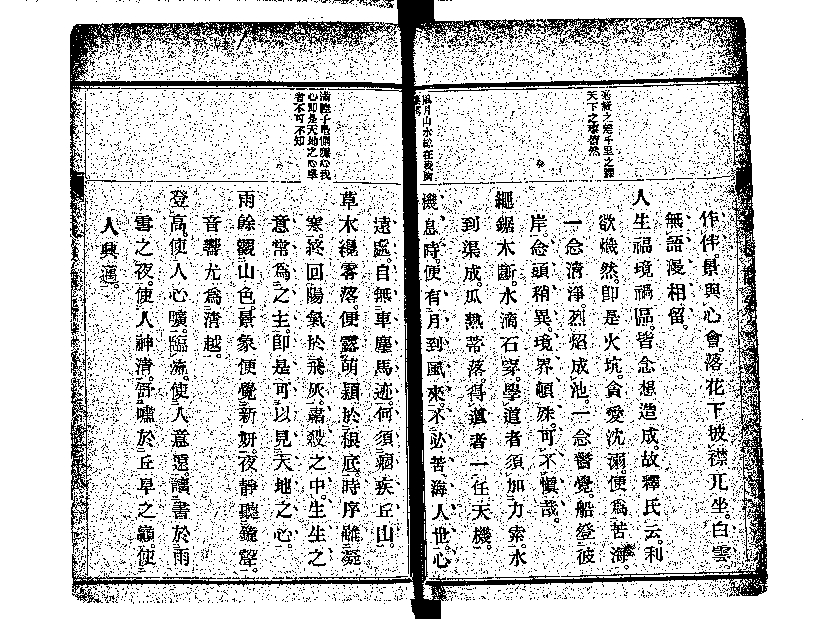 之差千里之謬
天下之事皆然
作伴。景與心會。落花下披襟兀坐。白雲
無語漫相留。
人生福境禍區。皆念想造成。故釋氏云。利
欲熾然。即是火坑。貪愛沈溺。便爲苦海。
一念清淨。烈焰成池。一念警覺。船登彼
岸。念頭稍異。境界頓殊。可不愼哉。
繩鋸木斷。水滴石穿。學道者須加力索。水
到渠成。瓜熟蒂落。得道者一任天機。
風月山水總在我胸
機息時。便有月到風來。不必苦海人世。心
遠處。自無車塵馬迹。何須痼疾丘山。
滿腔子是惻隱心我
心即是天地之心學
者不可不知
草木纔零落。便露萌穎於根底。時序雖凝
寒。終回陽氣於飛灰。肅殺之中。生生之
意常爲之主。即是可以見天地之心。
雨餘觀山色。景象便覺新妍。夜靜聽鐘聲。
音響尤爲清越。
登高使人心曠。臨流使人意遠。讀書於雨
雪之夜。使人神清。舒嘯於丘阜之巓。使
人興邁。